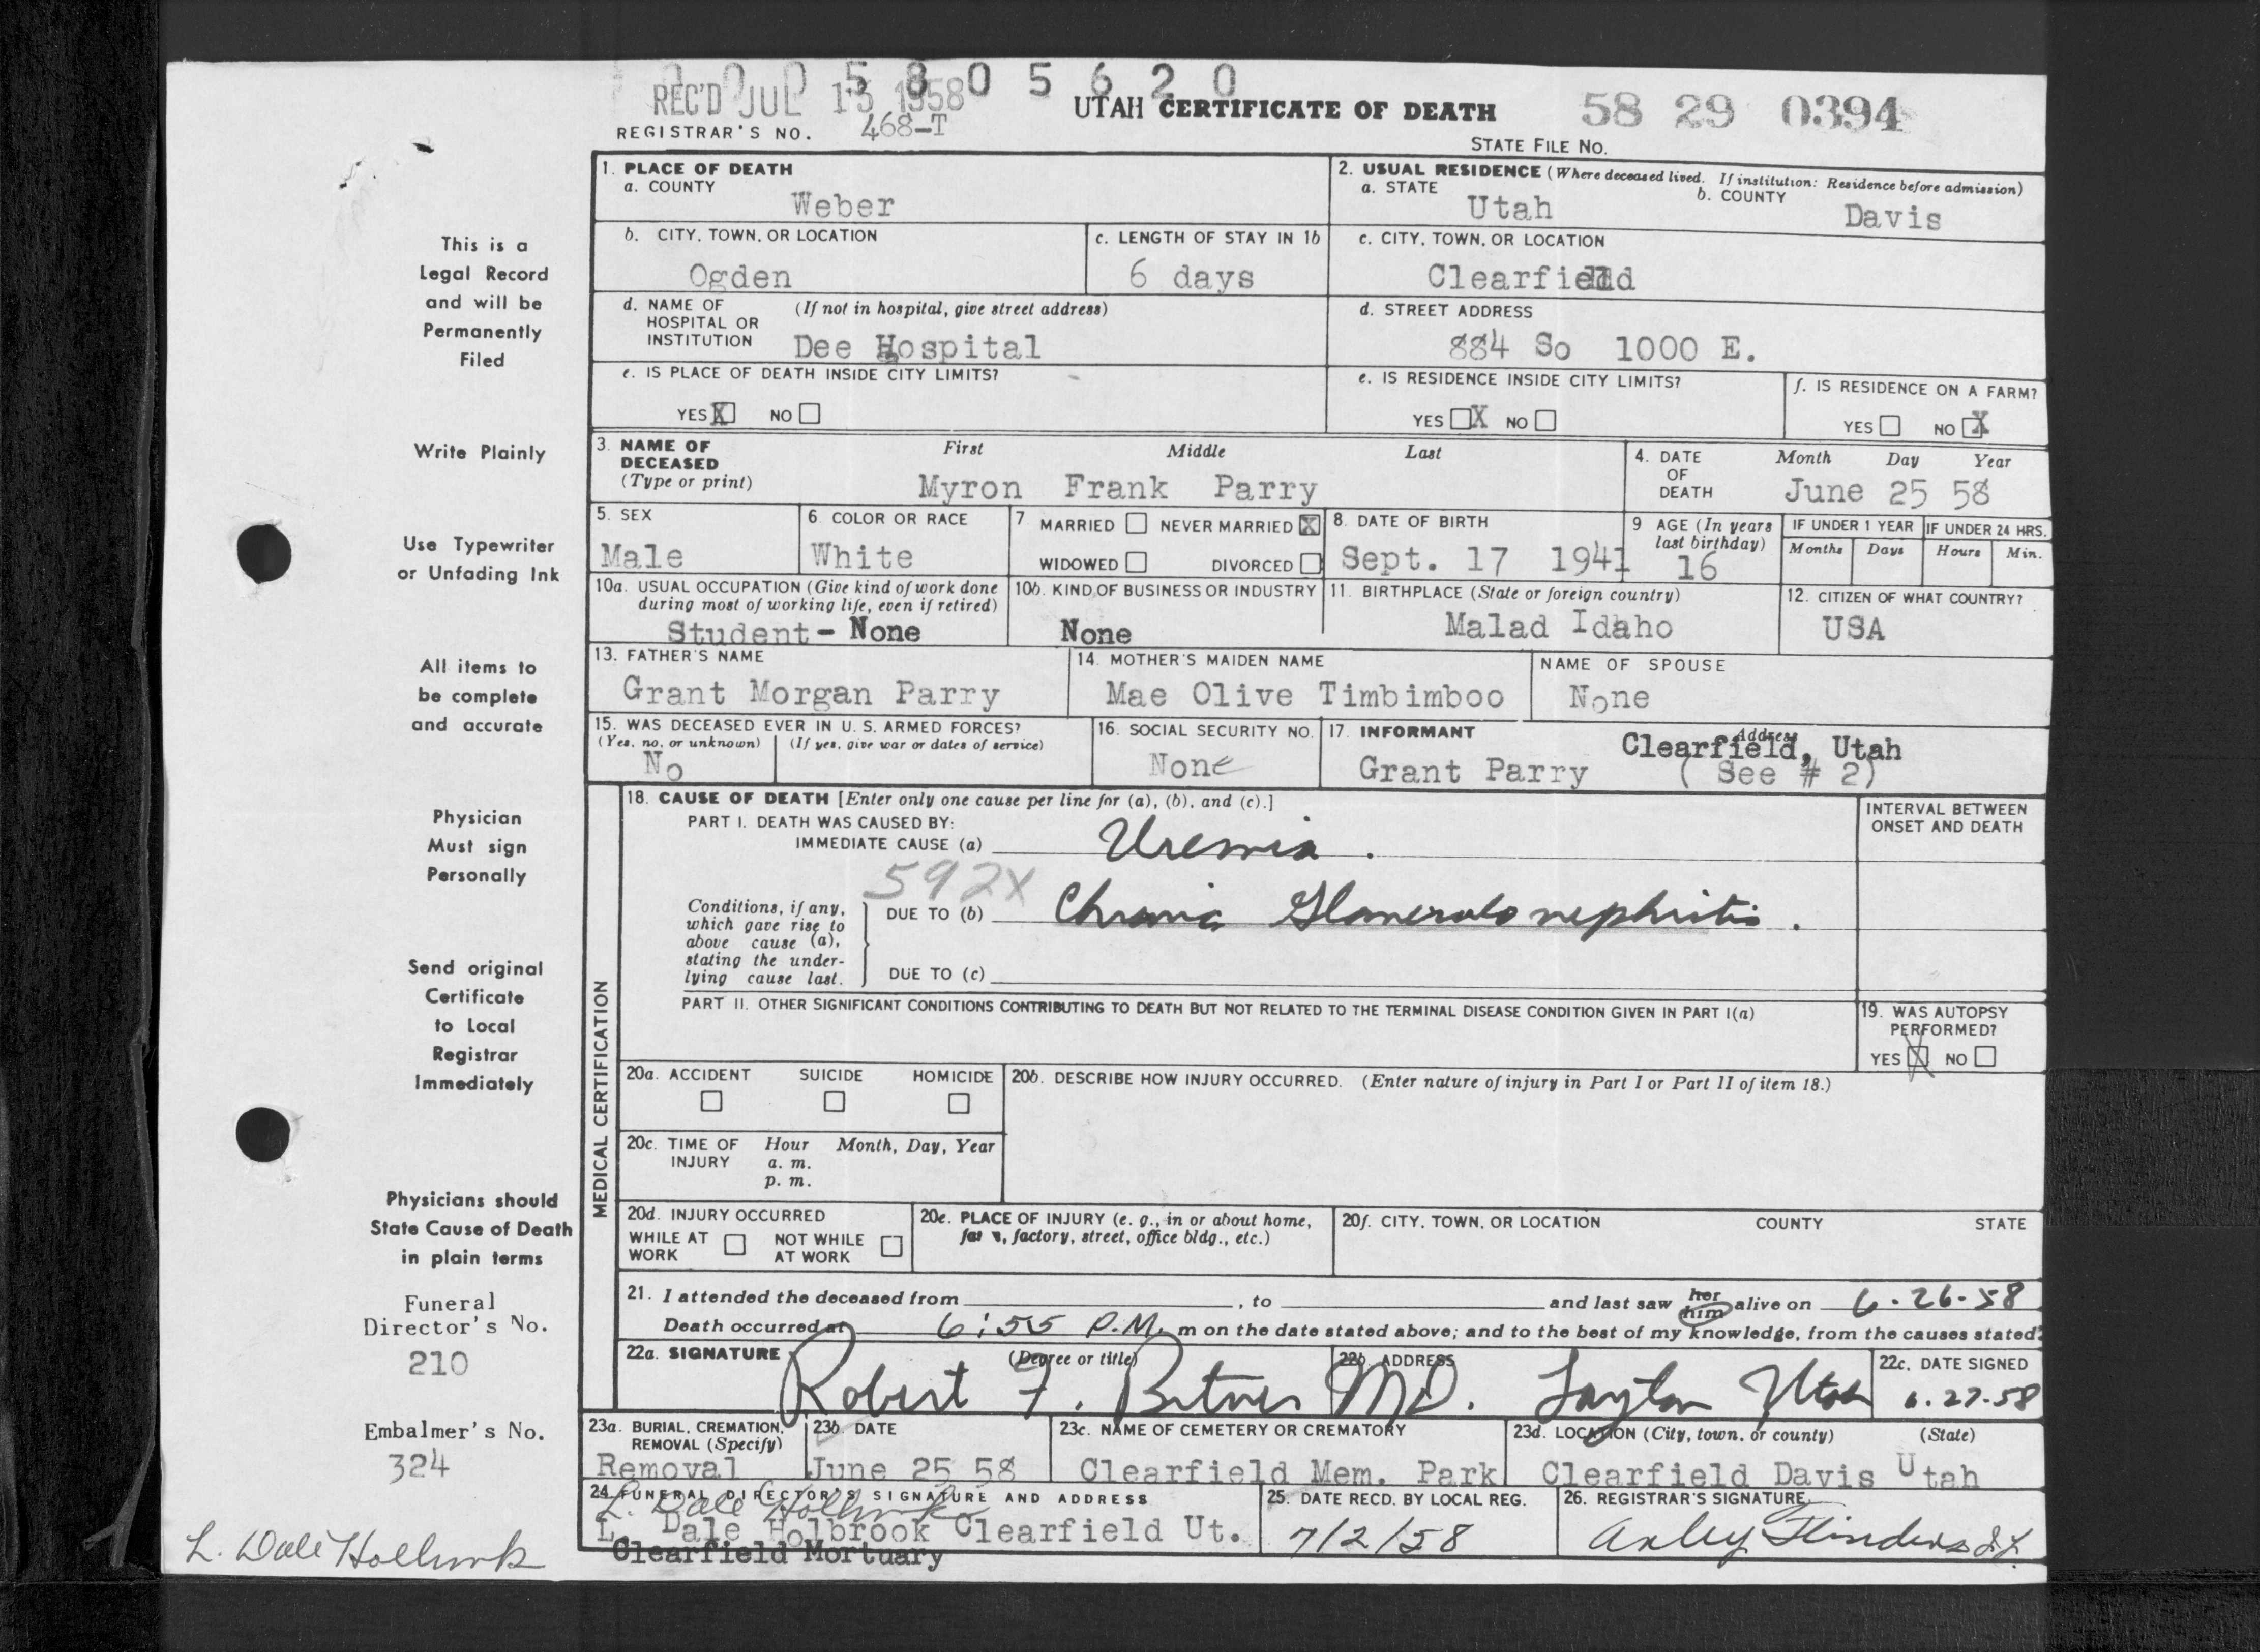 0 0 0 5 8 0 5 6 2 0
REC'D JUL 15 1958
UTAH CERTIFICATE OF DEATH
58 29 0394
REGISTRAR'S NO. 468-T
STATE FILE NO.
1. PLACE OF DEATH
a. COUNTY
Weber
2. USUAL RESIDENCE (Where deceased lived. If institution: Residence before admission)
a. STATE
Utah
b. COUNTY
Davis
b. CITY, TOWN, OR LOCATION
Ogden
c. LENGTH OF STAY IN 1b
6 days
c. CITY, TOWN, OR LOCATION
Clearfield
d. NAME OF HOSPITAL OR INSTITUTION
(If not in hospital, give street address)
Dee Hospital
d. STREET ADDRESS
884 So 1000 E.
e. IS PLACE OF DEATH INSIDE CITY LIMITS?
YES X NO
e. IS RESIDENCE INSIDE CITY LIMITS?
YES X NO
f. IS RESIDENCE ON A FARM?
YES NO X
3. NAME OF DECEASED
(Type or print)
First Middle Last
Myron Frank Parry
4. DATE OF DEATH
Month Day Year
June 25 58
5. SEX
Male
6 COLOR OR RACE
White
7 MARRIED NEVER MARRIED X
WIDOWED DIVORCED
8. DATE OF BIRTH
Sept. 17 1941
9 AGE (In years last birthday)
16
IF UNDER 1 YEAR
Months Days
IF UNDER 24 HRS.
Hours Min.
10a. USUAL OCCUPATION (Give kind of work done during most of working life, even if retired)
Student - None
10b. KIND OF BUSINESS OR INDUSTRY
None
11. BIRTHPLACE (State or foreign country)
Malad Idaho
12. CITIZEN OF WHAT COUNTRY?
USA
13. FATHER'S NAME
Grant Morgan Parry
14. MOTHER'S MAIDEN NAME
Mae Olive Timbimboo
NAME OF SPOUSE
None
15. WAS DECEASED EVER IN U. S. ARMED FORCES?
(Yes, no, or unknown) (If yes, give war or dates of service)
No
16. SOCIAL SECURITY NO.
None
17. INFORMANT
Address
Clearfield, Utah
Grant Parry ( See # 2)
MEDICAL CERTIFICATION
18. CAUSE OF DEATH [Enter only one cause per line for (a), (b), and (c).]
INTERVAL BETWEEN ONSET AND DEATH
PART I. DEATH WAS CAUSED BY:
IMMEDIATE CAUSE (a) Uremia .
592X
Conditions, if any, which gave rise to above cause (a), stating the underlying cause last.
DUE TO (b) Chronic Glomerulonephritis .
DUE TO (c)
PART II. OTHER SIGNIFICANT CONDITIONS CONTRIBUTING TO DEATH BUT NOT RELATED TO THE TERMINAL DISEASE CONDITION GIVEN IN PART I(a)
19. WAS AUTOPSY PERFORMED?
YES X NO
20a. ACCIDENT SUICIDE HOMICIDE
20b. DESCRIBE HOW INJURY OCCURRED. (Enter nature of injury in Part I or Part II of item 18.)
20c. TIME OF INJURY
Hour Month, Day, Year
a. m.
p. m.
20d. INJURY OCCURRED
WHILE AT WORK NOT WHILE AT WORK
20e. PLACE OF INJURY (e. g., in or about home, farm, factory, street, office bldg., etc.)
20f. CITY, TOWN, OR LOCATION COUNTY STATE
21. I attended the deceased from , to and last saw her him alive on 6-26-58
Death occurred at 6:55 P.M. m on the date stated above; and to the best of my knowledge, from the causes stated.
22a. SIGNATURE (Degree or title)
Robert F. Bitner MD.
22b. ADDRESS
Layton Utah
22c. DATE SIGNED
6.27.58
23a. BURIAL, CREMATION, REMOVAL (Specify)
Removal
23b DATE
June 25 58
23c. NAME OF CEMETERY OR CREMATORY
Clearfield Mem. Park
23d. LOCATION (City, town, or county) (State)
Clearfield Davis Utah
24 FUNERAL DIRECTOR'S SIGNATURE AND ADDRESS
L. Dale Holbrook
L. Dale Holbrook Clearfield Ut.
Clearfield Mortuary
25. DATE RECD. BY LOCAL REG.
7/2/58
26. REGISTRAR'S SIGNATURE
Flinders
This is a
Legal Record
and will be
Permanently
Filed
Write Plainly
Use Typewriter
or Unfading Ink
All items to
be complete
and accurate
Physician
Must sign
Personally
Send original
Certificate
to Local
Registrar
Immediately
Physicians should
State Cause of Death
in plain terms
Funeral
Director's No.
210
Embalmer's No.
324
L. Dale Holbrook